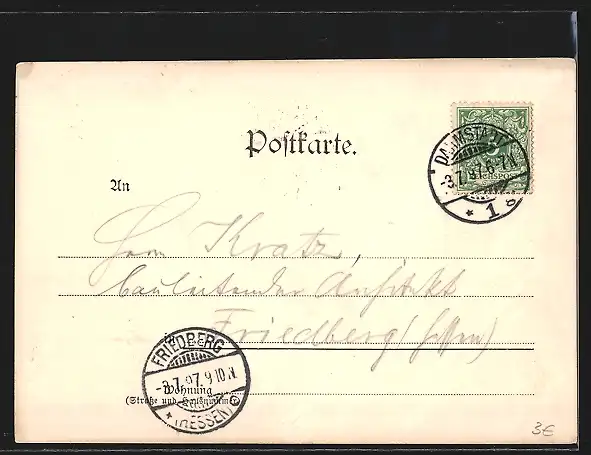 Postkarte.
DARMSTADT
-3.7.97.6-7N.
* 1 g
REICHSPOST
An
Herrn Kratz,
bauleitender Architekt
Friedberg (Hessen)
FRIEDBERG
-3.7.97.9-10.N
* (HESSEN)
Wohnung
(Straße und Hausnummer)
3€